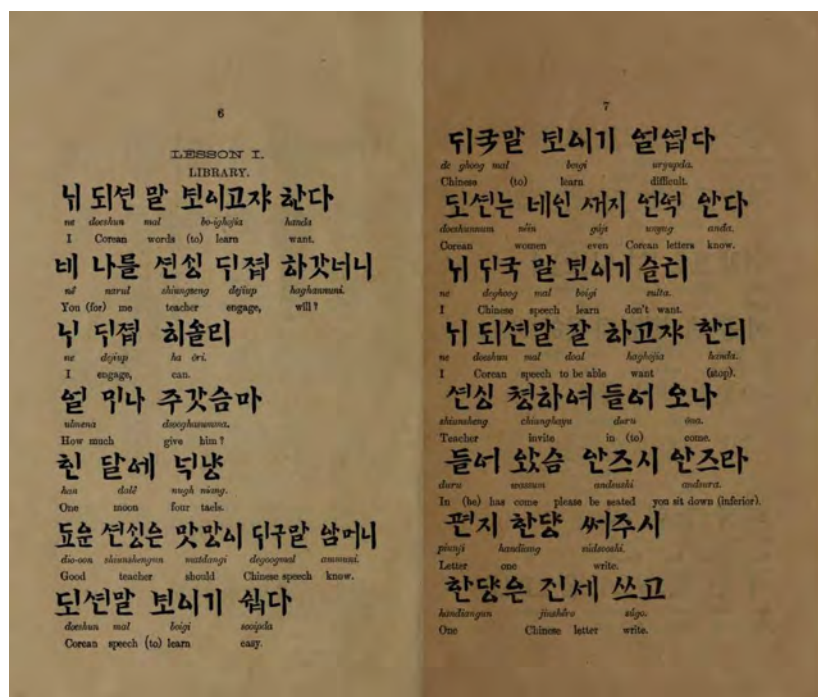 6
LESSON I.
LIBRARY.
뉘 되션 말 보이고쟈 한다
ne doeshun mal bo-ighojia handa
I Corean words (to) learn want.
네 나를 션싱 듸졉 하갓너니
nê narul shiungseng dejiup haghannuni.
You (for) me teacher engage, will?
닉 듸졉 히올리
ne dejiup ha ōri.
I engage, can.
얼 미나 주갓슴마
ulmena dsooghasumma.
How much give him?
힌 달에 넉냥
han dalê nugh niang.
One moon four taels.
됴운 션싱은 맛망이 듸구말 암머니
dio-oon shiunshengun matdangi degoogmal ammuni.
Good teacher should Chinese speech know.
되션말 보이기 쉽다
doeshun mal boigi sooipda
Corean speech (to) learn easy.
7
듸국말 보이기 얼엽다
de ghoog mal boigi uryupda.
Chinese (to) learn difficult.
되션는 네인 까지 언역 안다
doeshunnum nêin gāji unyug anda.
Corean women even Corean letters know.
뉘 듸국 말 보이기 슬타
ne deghoog mal boigi sulta.
I Chinese speech learn don't want.
뉘 되션말 잘 하고쟈 한디
ne doeshun mal dsal haghojia handa.
I Corean speech to be able want (stop).
션싱 쳥하여 들어 오나
shiunsheng chiunghayu duru ōna.
Teacher invite in (to) come.
들어 왔슴 안즈시 안즈라
duru wassum andsushi andsura.
In (he) has come please be seated you sit down (inferior).
편지 한댱 써주시
piunji handiang sūdsooshi.
Letter one write.
한댱은 진세 쓰고
handiangun jinshêro sūgo.
One Chinese letter write.